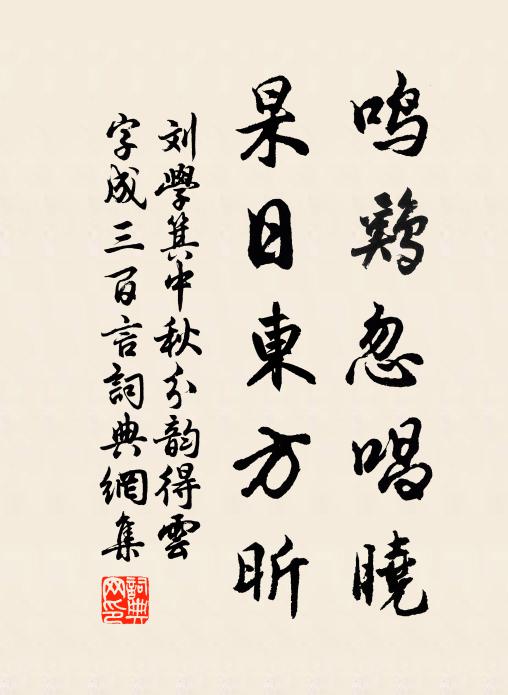 鸣鷄忽唱曉
杲日東方昕
刘學箕中秋分韵得雲
字成三百言詞典網集
詞典网印